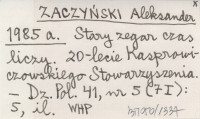 ZACZYŃSKI Aleksander
1985 a. Stary zegar czas
liczy. 20-lecie Kasprowi-
czowskiego Stowarzyszenia.
- Dz. Pol. 41, nr 5 (7 I):
5, il. WHP